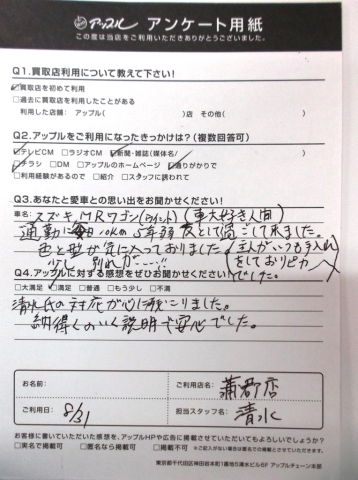 アップル アンケート用紙
この度は当店をご利用いただきありがとうございました。
Q1.買取店利用について教えて下さい!
☑買取店を初めて利用
□過去に買取店を利用したことがある
利用した店舗:アップル( )店 その他( )
Q2.アップルをご利用になったきっかけは?(複数回答可)
☑テレビCM □ラジオCM ☑新聞・雑誌(媒体名/ )
☑チラシ □DM □アップルのホームページ ☑通りがかりで
□利用経験があるので □紹介 □スタッフに誘われて
Q3.あなたと愛車との思い出をお聞かせください!
車名: スズキMRワゴン(ウィット) (車大好き人間)
通勤に毎日10Kの5年弱 友として過ごして来ました。
色と型が気に入っておりました。(主人がいつも手入れ
少し 別れが…!! をしておりピカピカ
でした。)
Q4.アップルに対する感想をぜひお聞かせください!
□大満足 ☑満足 □普通 □もう少し □不満
清水氏の対応が心に残こりました。
納得くのいく説明で安心でした。
お名前:
ご利用店名: 蒲郡店
ご利用日: 8/31
担当スタッフ名: 清水
お客様に書いていただいた感想を、アップルHPや広告に掲載させていただいてもよろしいでしょうか?
□実名で掲載可 □匿名なら掲載可 □掲載不可 ※ご記入がない場合は匿名での掲載とさせていただきます。
東京都千代田区神田岩本町1番地5清水ビル6F アップルチェーン本部